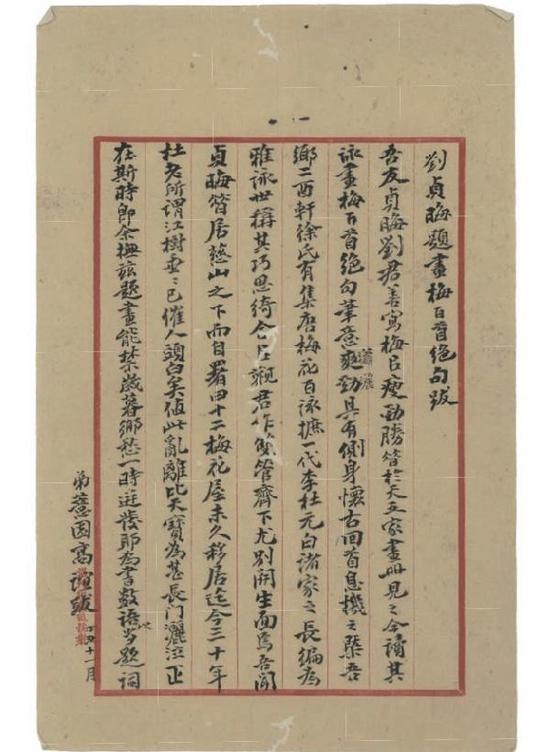 劉貞晦題畫梅百首絕句跋
吾友貞晦劉君善寫梅以瘦勁勝嘗於天五家畫冊見之今讀其
詠畫梅百首絕句筆意蕭疏爽勁具有側身懷古回首息機之槩吾
鄉二酉軒徐氏有集唐梅花百詠摭一代李杜元白諸家之長編為
雅詠世稱其巧思綺合以視君作雙管齊下尤別開生面焉吾聞
貞晦嘗居慈山之下而自署四十二梅花屋未久移居迄今三十年
杜老所謂江樹垂垂已催人頭白矣值此亂離比天寶為甚長門灑泣正
在斯時即余撫茲題畫能禁歲暮鄉愁一時迸發耶為書數語以當題詞
弟薏園高誼跋 十一月